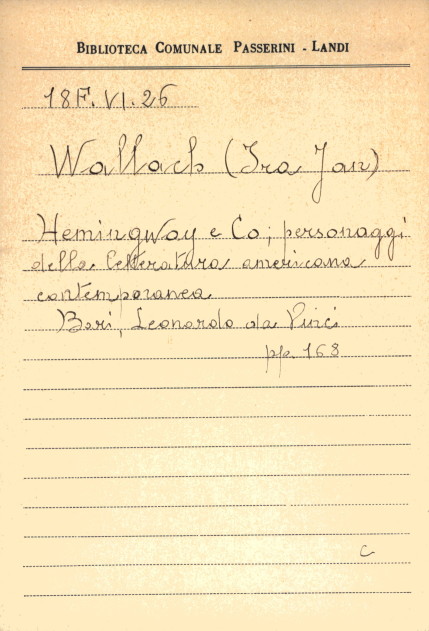 BIBLIOTECA COMUNALE PASSERINI - LANDI
18F. VI. 26
Wallach (Ira Jan)
Hemingway e Co; personaggi
della letteratura americana
contemporanea
Bari, Leonardo da Vinci
pp. 168
C